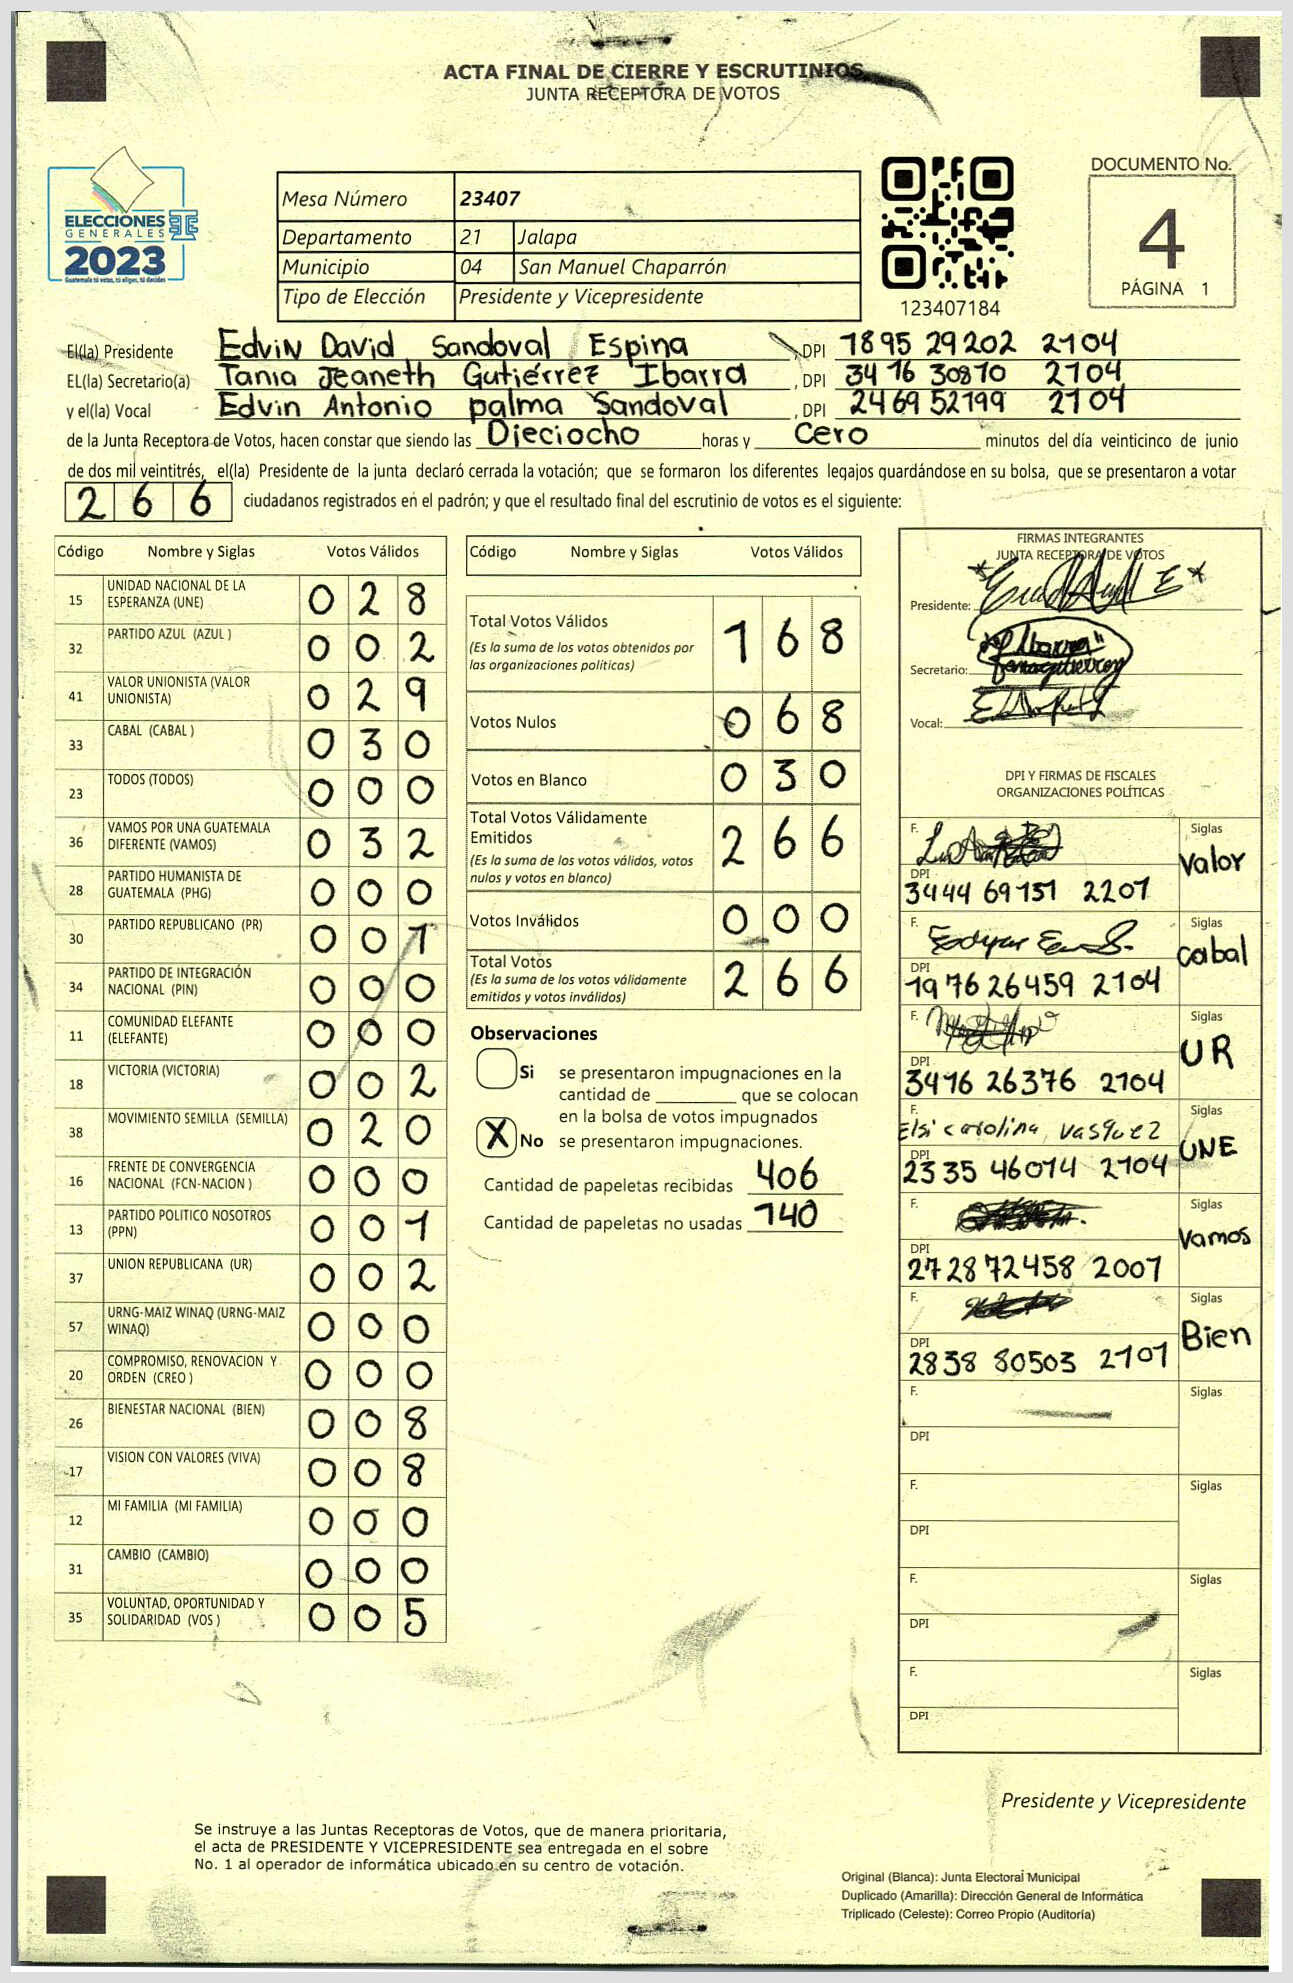 ACTA FINAL DE CIERRE Y ESCRUTINIOS
JUNTA RECEPTORA DE VOTOS
ELECCIONES
GENERALES
2023
Guatemala tú votas, tú eliges, tú decides
Mesa Número 23407
Departamento 21 Jalapa
Municipio 04 San Manuel Chaparrón
Tipo de Elección Presidente y Vicepresidente
123407184
DOCUMENTO No.
4
PÁGINA 1
El(la) Presidente Edvin David Sandoval Espina , DPI 1895 29202 2104
EL(la) Secretario(a) Tania Jeaneth Gutiérrez Ibarra , DPI 3416 30870 2104
y el(la) Vocal Edvin Antonio palma Sandoval , DPI 2469 52199 2104
de la Junta Receptora de Votos, hacen constar que siendo las Dieciocho horas y Cero minutos del día veinticinco de junio
de dos mil veintitrés, el(la) Presidente de la junta declaró cerrada la votación; que se formaron los diferentes legajos guardándose en su bolsa, que se presentaron a votar
266 ciudadanos registrados en el padrón; y que el resultado final del escrutinio de votos es el siguiente:
Código Nombre y Siglas Votos Válidos
15 UNIDAD NACIONAL DE LA ESPERANZA (UNE) 028
32 PARTIDO AZUL (AZUL ) 002
41 VALOR UNIONISTA (VALOR UNIONISTA) 029
33 CABAL (CABAL ) 030
23 TODOS (TODOS) 000
36 VAMOS POR UNA GUATEMALA DIFERENTE (VAMOS) 032
28 PARTIDO HUMANISTA DE GUATEMALA (PHG) 000
30 PARTIDO REPUBLICANO (PR) 001
34 PARTIDO DE INTEGRACIÓN NACIONAL (PIN) 000
11 COMUNIDAD ELEFANTE (ELEFANTE) 000
18 VICTORIA (VICTORIA) 002
38 MOVIMIENTO SEMILLA (SEMILLA) 020
16 FRENTE DE CONVERGENCIA NACIONAL (FCN-NACION ) 000
13 PARTIDO POLITICO NOSOTROS (PPN) 001
37 UNION REPUBLICANA (UR) 002
57 URNG-MAIZ WINAQ (URNG-MAIZ WINAQ) 000
20 COMPROMISO, RENOVACION Y ORDEN (CREO ) 000
26 BIENESTAR NACIONAL (BIEN) 008
17 VISION CON VALORES (VIVA) 008
12 MI FAMILIA (MI FAMILIA) 000
31 CAMBIO (CAMBIO) 000
35 VOLUNTAD, OPORTUNIDAD Y SOLIDARIDAD (VOS ) 005
Código Nombre y Siglas Votos Válidos
Total Votos Válidos 168
(Es la suma de los votos obtenidos por
las organizaciones políticas)
Votos Nulos 068
Votos en Blanco 030
Total Votos Válidamente
Emitidos 266
(Es la suma de los votos válidos, votos
nulos y votos en blanco)
Votos Inválidos 000
Total Votos 266
(Es la suma de los votos válidamente
emitidos y votos inválidos)
Observaciones
Si se presentaron impugnaciones en la
cantidad de ________ que se colocan
en la bolsa de votos impugnados
X No se presentaron impugnaciones.
Cantidad de papeletas recibidas 406
Cantidad de papeletas no usadas 140
FIRMAS INTEGRANTES
JUNTA RECEPTORA DE VOTOS
Presidente:
Secretario:
Vocal:
DPI Y FIRMAS DE FISCALES
ORGANIZACIONES POLÍTICAS
F. Siglas Valor
DPI 3444 69151 2201
F. Siglas cabal
DPI 1976 26459 2104
F. Siglas UR
DPI 3416 26376 2104
F. Elsi carolina vasquez Siglas UNE
DPI 2335 46014 2104
F. Siglas Vamos
DPI 2728 72458 2007
F. Siglas Bien
DPI 2838 80503 2101
F. Siglas
DPI
F. Siglas
DPI
F. Siglas
DPI
F. Siglas
DPI
Presidente y Vicepresidente
Se instruye a las Juntas Receptoras de Votos, que de manera prioritaria,
el acta de PRESIDENTE Y VICEPRESIDENTE sea entregada en el sobre
No. 1 al operador de informática ubicado en su centro de votación.
Original (Blanca): Junta Electoral Municipal
Duplicado (Amarilla): Dirección General de Informática
Triplicado (Celeste): Correo Propio (Auditoría)